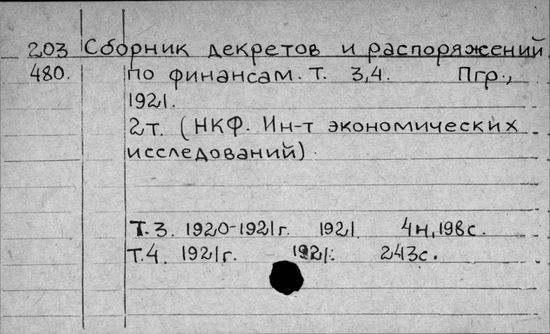 203 Сборник декретов и распоряжений
480. по финансам. Т. 3,4. Пгр.,
1921.
2т. (НКФ. Ин-т экономических
исследований).
Т.3. 1920-1921г. 1921. 4н,198с.
Т.4. 1921г. 1921. 243с.